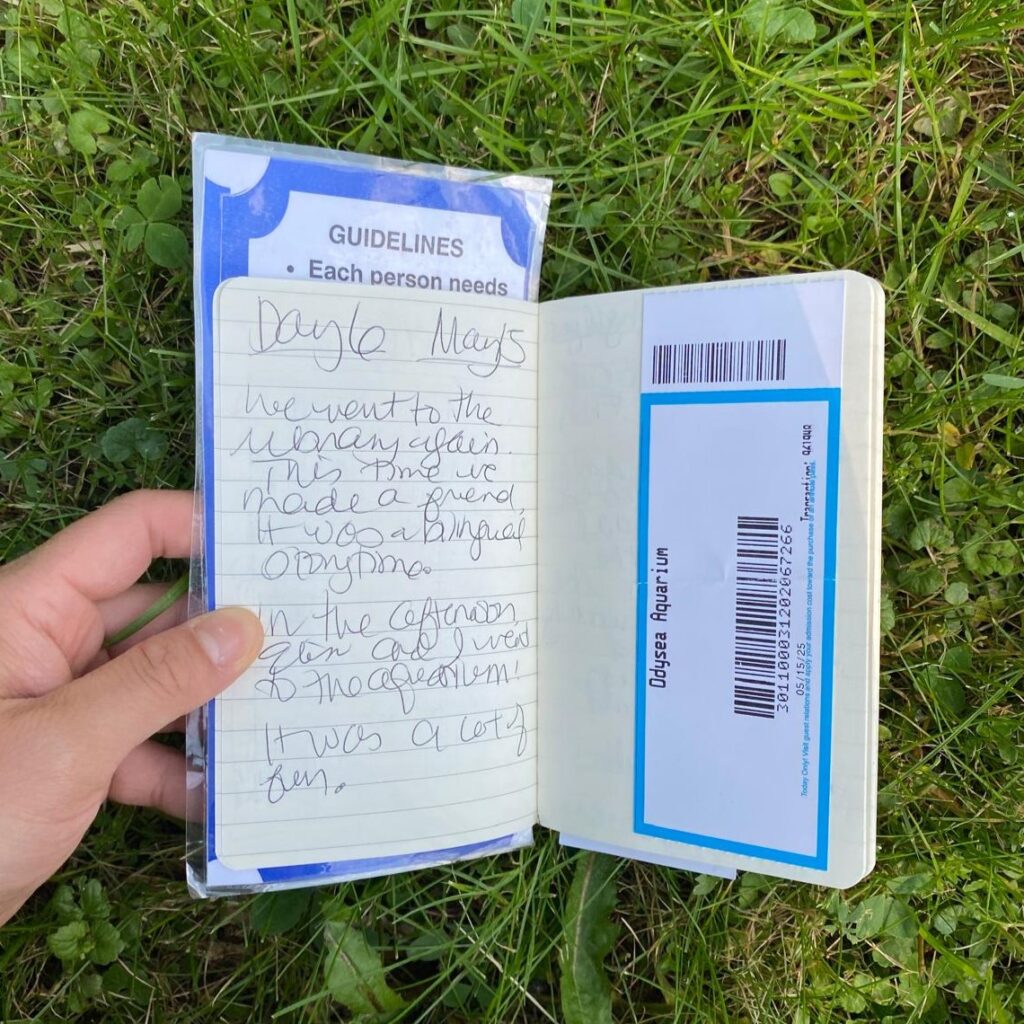 GUIDELINES
• Each person needs
Day 6 May 15
We went to the
library again.
This time we
made a friend.
It was a bilingual
storytime.
In the afternoon
and I went
to the aquarium!
It was a lot of
fun.
Odysea Aquarium
301100031202067266
05/15/25
Transaction:
Today Only! Visit guest relations and apply your admission cost toward the purchase of an annual pass.